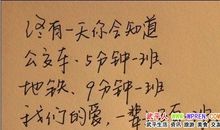 终有一天你会知道
公交车、5分钟一班
地铁、9分钟一班
我们的爱,一辈
武平人 WWW.WPREN.COM